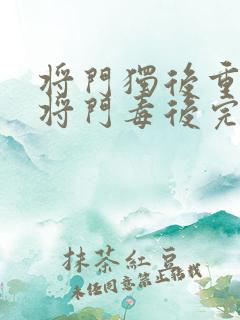 將門獨後重
將門毒後完
抹茶紅豆
未任同意禁止拾我